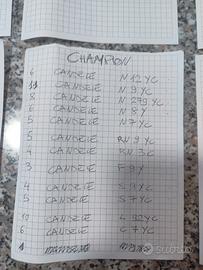 CHAMPION
6 CANDELE N 12 YC
11 CANDELE N 9 YC
8 CANDELE N 279 YC
6 CANDELE N 8 Y
5 CANDELE N 7 YC
5 CANDELE RN 9 YC
4 CANDELE RN 3 C
3 CANDELE F 9 Y
4 CANDELE S 9 YC
5 CANDELE S 7 YC
10 CANDELE L 92 YC
6 CANDELE L 7 YC
subito